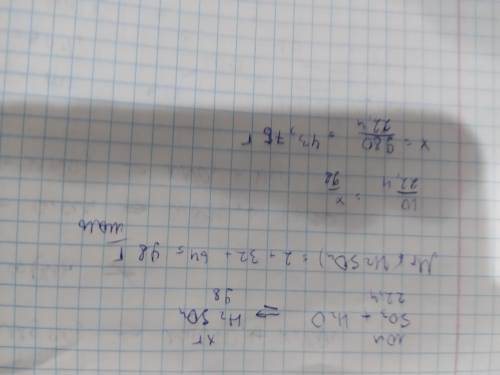 10л xг
SO₂ + H₂O ⇒ H₂SO₄
22,4 98
Mr(H₂SO₄) = 2 + 32 + 64 = 98 г/моль
10/22,4 = x/98
x = 980/22,4 = 43,75 г